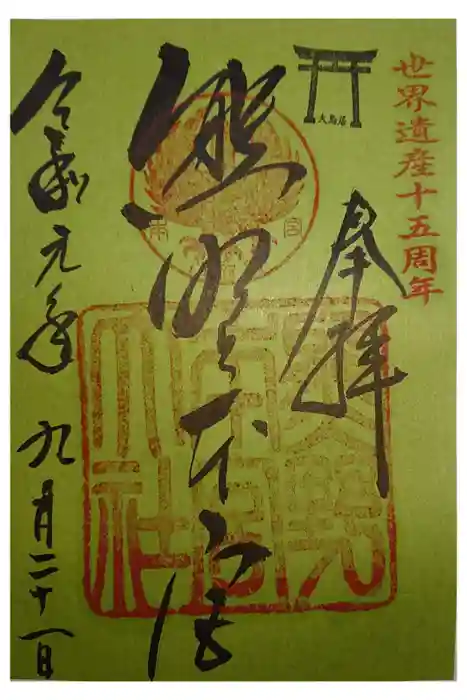 世界遺産十五周年
大鳥居
奉拝
熊野本宮
熊野
本宮
大社
令和元年九月二十一日